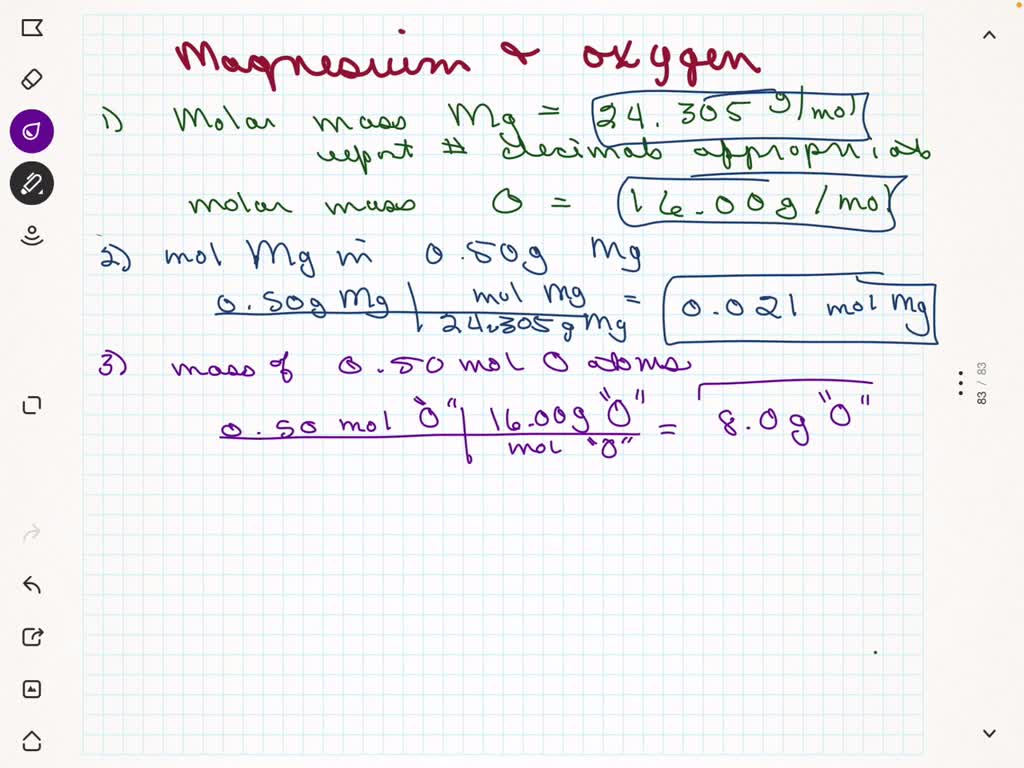 Magnesium & oxygen
1) Molar mass Mg = 24.305 g/mol
report # decimals appropriate
molar mass O = 16.00g/mol
2) mol Mg in 0.50g Mg
0.50g Mg | mol Mg = 0.021 mol Mg
24.305g Mg
3) mass of 0.50 mol O atoms
0.50 mol "O" | 16.00g "O" = 8.0g "O"
mol "O"
83 / 83